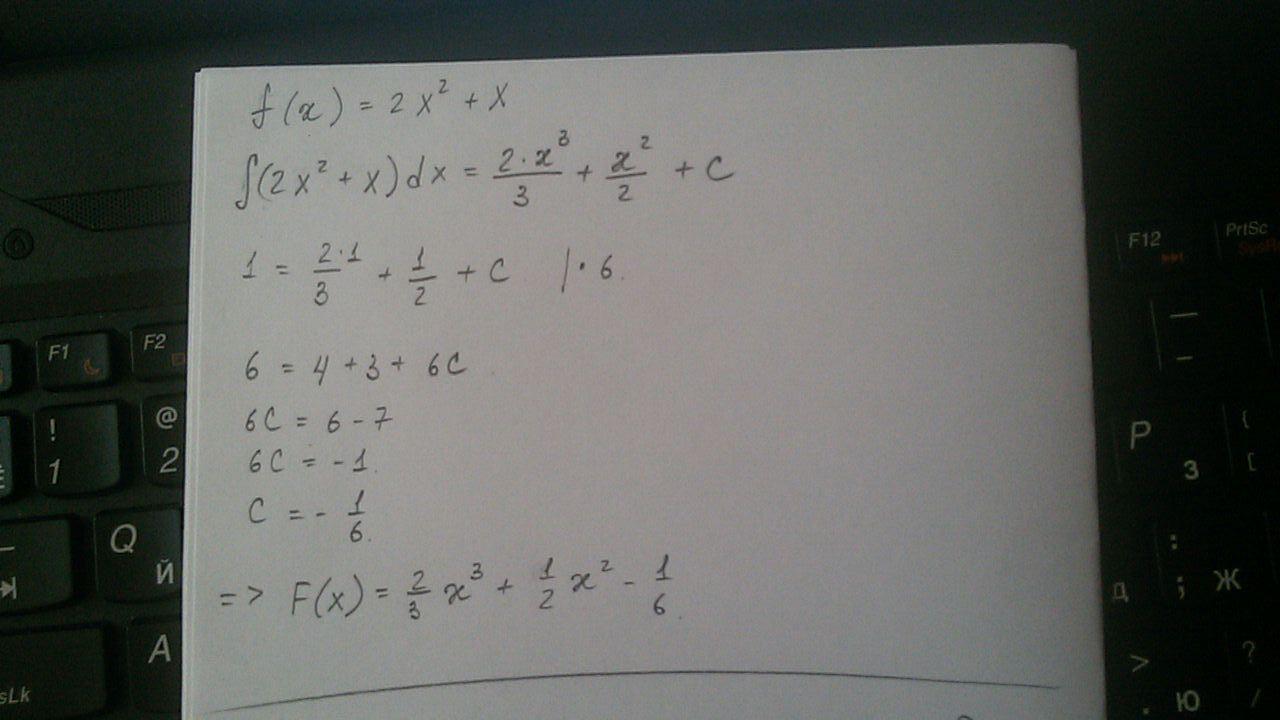 f(x) = 2x² + x
∫(2x² + x)dx = \frac{2·x³}{3} + \frac{x²}{2} + C
1 = \frac{2·1}{3} + \frac{1}{2} + C |· 6.
6 = 4 + 3 + 6C
6C = 6 - 7
6C = -1.
C = - \frac{1}{6}.
=> F(x) = \frac{2}{3} x³ + \frac{1}{2} x² - \frac{1}{6}.
F1
F2
!
1
@
2
Q
Й
A
sLk
F12
PrtSc
P
З
{
[
:
;
Д
Ж
>
.
Ю
?
/